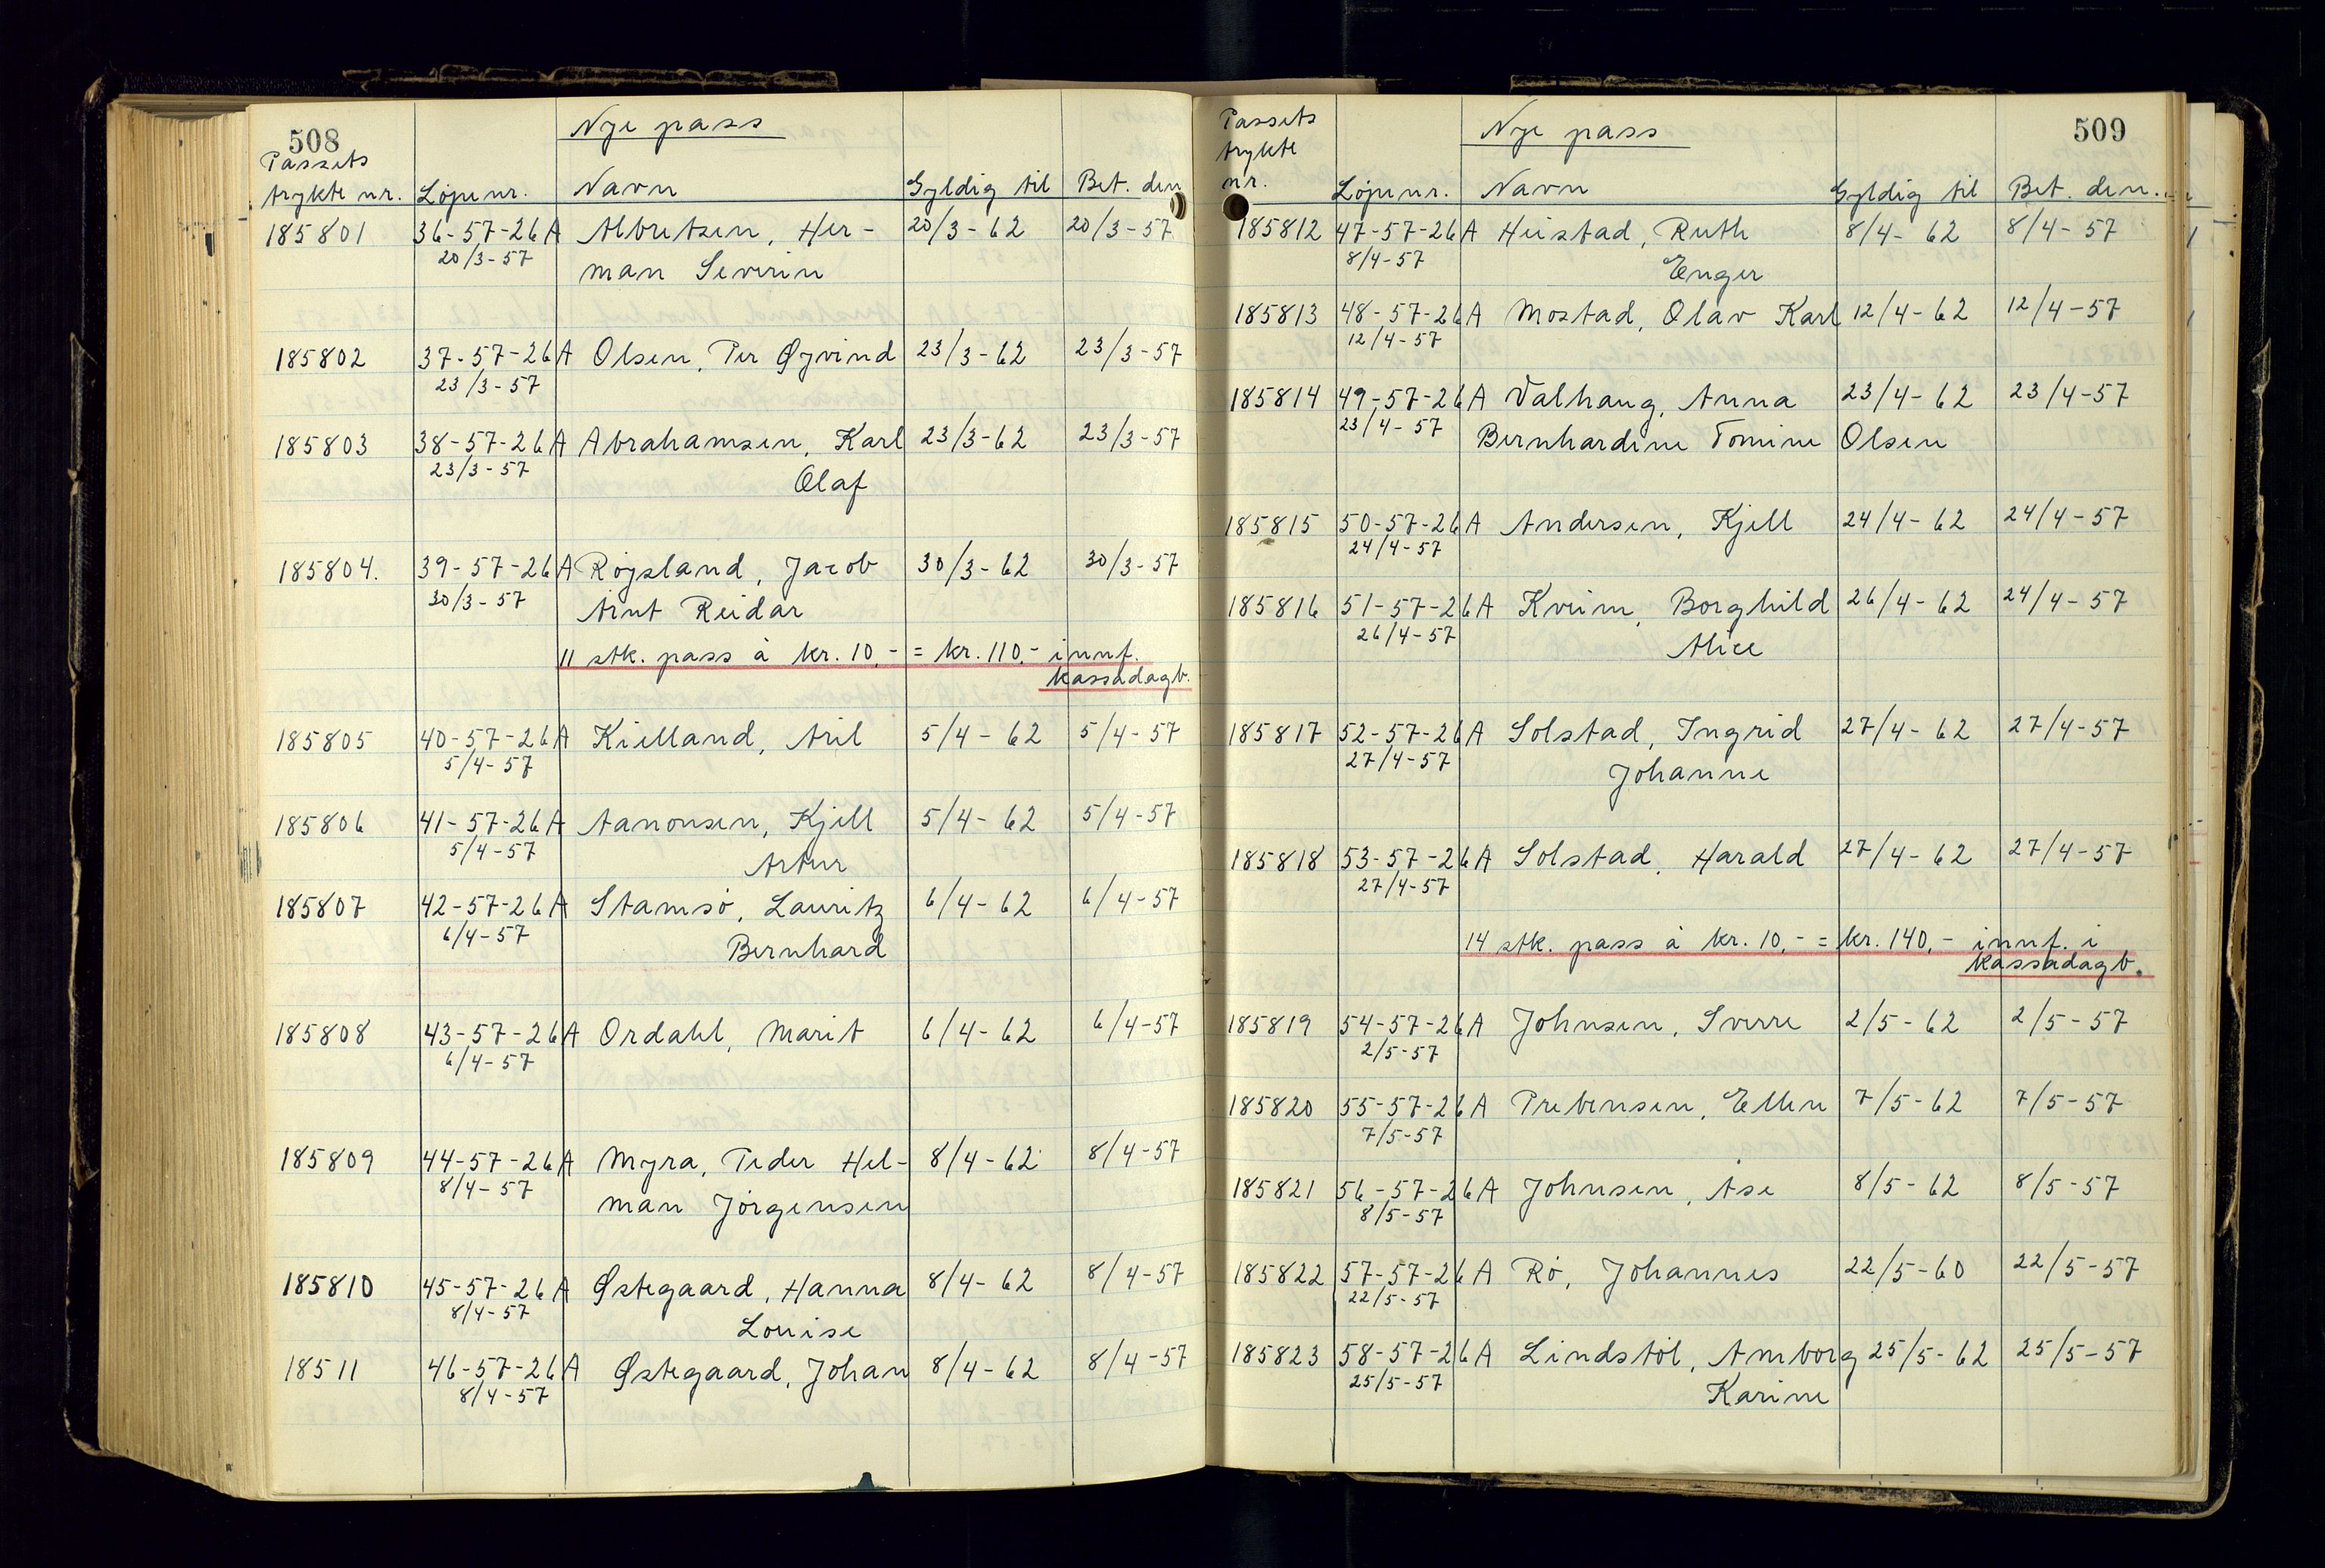 508
Nye pass
Passets
trykte nr. Løpenr. Navn Gyldig til Bet. den
185801 36-57-26A Albretsen, Her- 20/3-62 20/3-57
20/3-57 man Severin
185802 37-57-26A Olsen, Per Øyvind 23/3-62 23/3-57
23/3-57
185803 38-57-26A Abrahamsen, Karl 23/3-62 23/3-57
23/3-57 Olaf
185804. 39-57-26A Røysland, Jacob 30/3-62 30/3-57
30/3-57 Arnt Reidar
11 stk. pass à kr. 10,- = kr. 110,- innf.
kassadagb.
185805 40-57-26A Kielland, Aril 5/4-62 5/4-57
5/4-57
185806 41-57-26A Aanonsen, Kjell 5/4-62 5/4-57
5/4-57 Artur
185807 42-57-26A Stamsö, Lauritz 6/4-62 6/4-57
6/4-57 Bernhard
185808 43-57-26A Ordahl, Marit 6/4-62 6/4-57
6/4-57
185809 44-57-26A Myra, Peder Hel- 8/4-62 8/4-57
8/4-57 man Jørgensen
185810 45-57-26A Østegaard, Hanna 8/4-62 8/4-57
8/4-57 Louise
18511 46-57-26A Østegaard, Johan 8/4-62 8/4-57
8/4-57
509
Passets Nye pass
trykte
nr. Løpenr. Navn Gyldig til Bet. den.
185812 47-57-26A Heistad, Ruth 8/4-62 8/4-57
8/4-57 Enger
185813 48-57-26A Mostad, Olav Karl 12/4-62 12/4-57
12/4-57
185814 49-57-26A Valhaug, Anna 23/4-62 23/4-57
23/4-57 Bernhardine Tomine Olsen
185815 50-57-26A Andersen, Kjell 24/4-62 24/4-57
24/4-57
185816 51-57-26A Kveim, Borghild 26/4-62 24/4-57
26/4-57 Alice
185817 52-57-26A Solstad, Ingrid 27/4-62 27/4-57
27/4-57 Johanne
185818 53-57-26A Solstad, Harald 27/4-62 27/4-57
27/4-57
14 stk. pass à kr. 10,- = kr. 140,- innf. i
kassadagb.
185819 54-57-26A Johnsen, Sverre 2/5-62 2/5-57
2/5-57
185820 55-57-26A Prebensen, Ellen 7/5-62 7/5-57
7/5-57
185821 56-57-26A Johnsen, Åse 8/5-62 8/5-57
8/5-57
185822 57-57-26A Rö, Johannes 22/5-60 22/5-57
22/5-57
185823 58-57-26A Lindstöl, Amborg 25/5-62 25/5-57
25/5-57 Karine